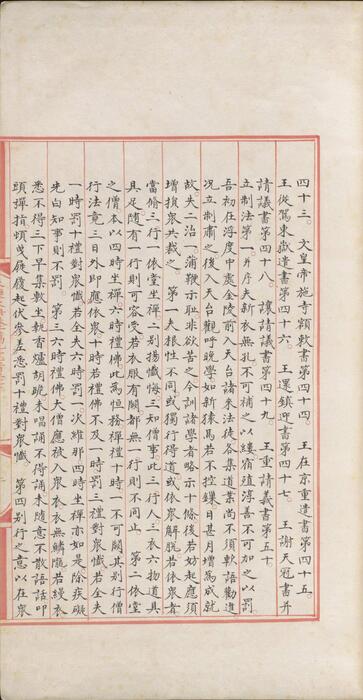 四十三。　文皇帝施寺額敕書第四十四。　王在京重遣書第四十五
王從駕東嶽遣書第四十六。　王還鎮迎書第四十七。　王謝天冠書并
請議書第四十八。　讓請議書第四十九。　王重請議書第五十
立制法第一并序夫新衣無孔不可補之以縷宿植淳善不可加之以罰
吾初在浮度中處金陵前入天台諸來法徒各集道業尚不須軟語勸進
況立制肅之後入天台觀乎晚學如新猿馬若不控鎖日甚月增為成就
故失二治一蒲鞭示恥非欲苦之今訓諸學者略示十條後若妨起應須
增損眾共裁之。　第一夫根性不同或獨行得道或依眾解脫若依眾者
當脩三行一依堂坐禪二別揚懺悔三知僧事此三行人三衣六物道具
具足隨有一行則可容受若衣服有闕都無一行則不同止　第二依堂
之僧本以四時坐禪六時禮佛此為恒務禪禮十時一不可闕其別行僧
行法竟三日外即應依眾十時若禮佛不及一時罰三禮對眾懺若全失
一時罰十禮對眾懺若全失六時罰一次維那四時坐禪亦如是除疾礙
先白知事則不罰。　第三六時禮佛大僧應被入眾衣衣無鱗隴若縵衣
悉不得三下早集敷坐執香爐胡跪未唱誦不得誦未隨意不散語話叩
頭彈指頓曳屣履起伏參差悉罰十禮對眾懺　第四別行之意以在眾